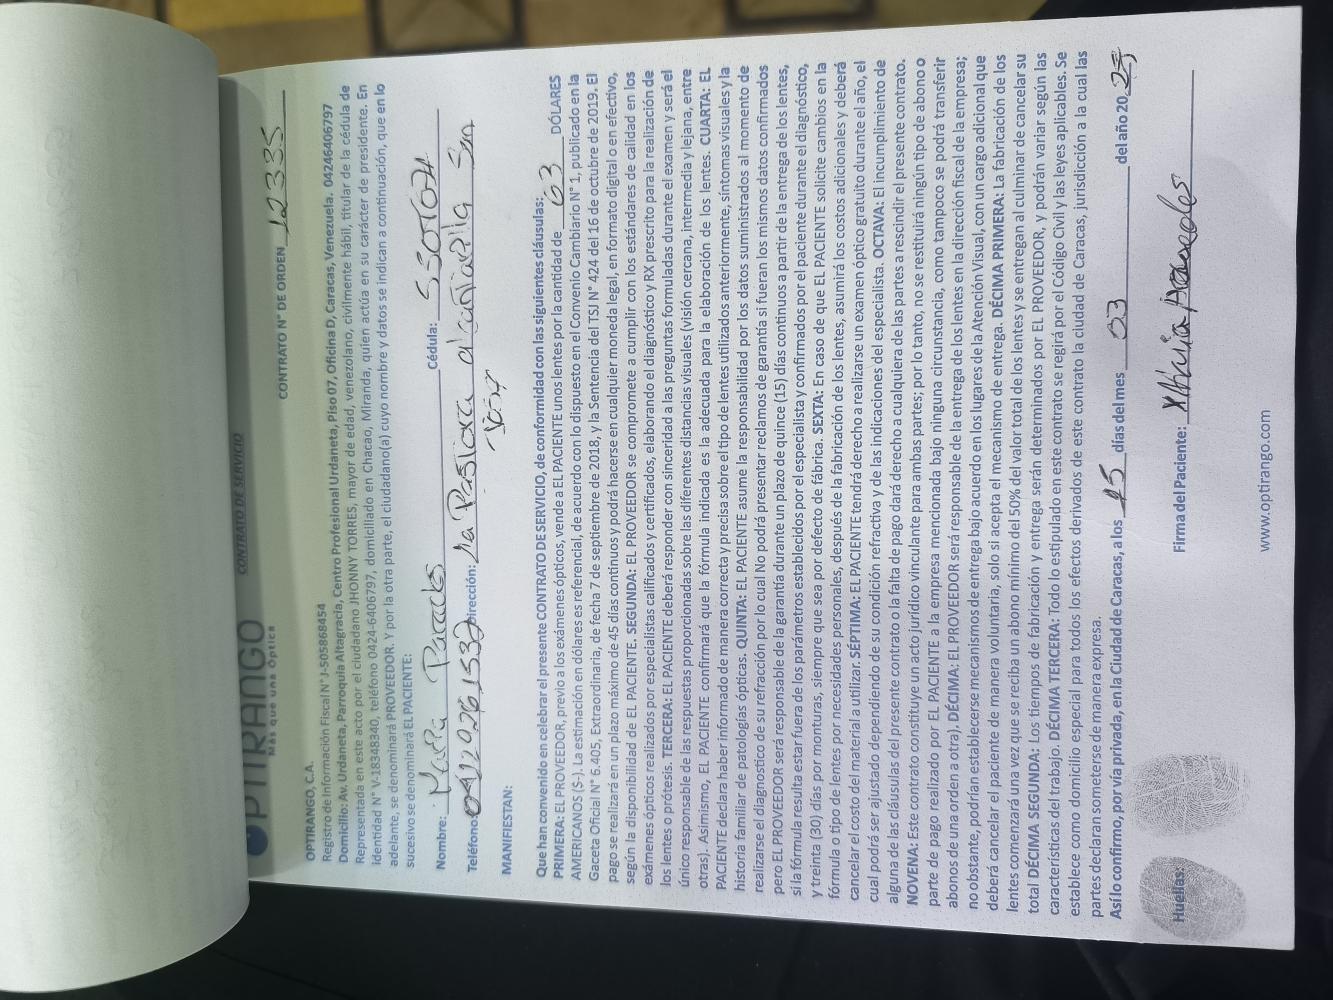 OPTIRANGO
Más que una Óptica
CONTRATO DE SERVICIO
CONTRATO N° DE ORDEN 12335
OPTIRANGO, C.A.
Registro de Información Fiscal N° J-505868454
Domicilio: Av. Urdaneta, Parroquia Altagracia, Centro Profesional Urdaneta, Piso 07, Oficina D, Caracas, Venezuela. 04246406797
Representada en este acto por el ciudadano JHONNY TORRES, mayor de edad, venezolano, civilmente hábil, titular de la cédula de
identidad N° V-18348340, teléfono 0424-6406797, domiciliado en Chacao, Miranda, quien actúa en su carácter de presidente. En
adelante, se denominará PROVEEDOR. Y por la otra parte, el ciudadano(a) cuyo nombre y datos se indican a continuación, que en lo
sucesivo se denominará EL PACIENTE:
Nombre: Paredes Cédula:
Teléfono: 04129261532 Dirección: La Pastora
MANIFIESTAN:
Que han convenido en celebrar el presente CONTRATO DE SERVICIO, de conformidad con las siguientes cláusulas:
PRIMERA: EL PROVEEDOR, previo a los exámenes ópticos, vende a EL PACIENTE unos lentes por la cantidad de 63 DÓLARES
AMERICANOS ($-). La estimación en dólares es referencial, de acuerdo con lo dispuesto en el Convenio Cambiario N° 1, publicado en la
Gaceta Oficial N° 6.405, Extraordinaria, de fecha 7 de septiembre de 2018, y la Sentencia del TSJ N° 424 del 16 de octubre de 2019. El
pago se realizará en un plazo máximo de 45 días continuos y podrá hacerse en cualquier moneda legal, en formato digital o en efectivo,
según la disponibilidad de EL PACIENTE. SEGUNDA: EL PROVEEDOR se compromete a cumplir con los estándares de calidad en los
exámenes ópticos realizados por especialistas calificados y certificados, elaborando el diagnóstico y RX prescrito para la realización de
los lentes o prótesis. TERCERA: EL PACIENTE deberá responder con sinceridad a las preguntas formuladas durante el examen y será el
único responsable de las respuestas proporcionadas sobre las diferentes distancias visuales (visión cercana, intermedia y lejana, entre
otras). Asimismo, EL PACIENTE confirmará que la fórmula indicada es la adecuada para la elaboración de los lentes. CUARTA: EL
PACIENTE declara haber informado de manera correcta y precisa sobre el tipo de lentes utilizados anteriormente, síntomas visuales y la
historia familiar de patologías ópticas. QUINTA: EL PACIENTE asume la responsabilidad por los datos suministrados al momento de
realizarse el diagnostico de su refracción por lo cual No podrá presentar reclamos de garantía si fueran los mismos datos confirmados
pero EL PROVEEDOR será responsable de la garantía durante un plazo de quince (15) días continuos a partir de la entrega de los lentes,
si la fórmula resulta estar fuera de los parámetros establecidos por el especialista y confirmados por el paciente durante el diagnóstico,
y treinta (30) días por monturas, siempre que sea por defecto de fábrica. SEXTA: En caso de que EL PACIENTE solicite cambios en la
fórmula o tipo de lentes por necesidades personales, después de la fabricación de los lentes, asumirá los costos adicionales y deberá
cancelar el costo del material a utilizar. SÉPTIMA: EL PACIENTE tendrá derecho a realizarse un examen óptico gratuito durante el año, el
cual podrá ser ajustado dependiendo de su condición refractiva y de las indicaciones del especialista. OCTAVA: El incumplimiento de
alguna de las cláusulas del presente contrato o la falta de pago dará derecho a cualquiera de las partes a rescindir el presente contrato.
NOVENA: Este contrato constituye un acto jurídico vinculante para ambas partes; por lo tanto, no se restituirá ningún tipo de abono o
parte de pago realizado por EL PACIENTE a la empresa mencionada bajo ninguna circunstancia, como tampoco se podrá transferir
abonos de una orden a otra). DÉCIMA: EL PROVEEDOR será responsable de la entrega de los lentes en la dirección fiscal de la empresa;
no obstante, podrían establecerse mecanismos de entrega bajo acuerdo en los lugares de la Atención Visual, con un cargo adicional que
deberá cancelar el paciente de manera voluntaria, solo si acepta el mecanismo de entrega. DÉCIMA PRIMERA: La fabricación de los
lentes comenzará una vez que se reciba un abono mínimo del 50% del valor total de los lentes y se entregan al culminar de cancelar su
total DÉCIMA SEGUNDA: Los tiempos de fabricación y entrega serán determinados por EL PROVEEDOR, y podrán variar según las
características del trabajo. DÉCIMA TERCERA: Todo lo estipulado en este contrato se regirá por el Código Civil y las leyes aplicables. Se
establece como domicilio especial para todos los efectos derivados de este contrato la ciudad de Caracas, jurisdicción a la cual las
partes declaran someterse de manera expresa.
Así lo confirmo, por vía privada, en la Ciudad de Caracas, a los 15 días del mes 03 del año 20
Huellas: Firma del Paciente:
www.optirango.com